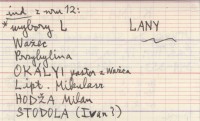 ind z nru 12:
* wybory L LANY
Važec
Przybylina
OKÁLYI pastor z Važca
Lipt. Mikulasz
HODŽA Milan
STODOLA (Ivan?)